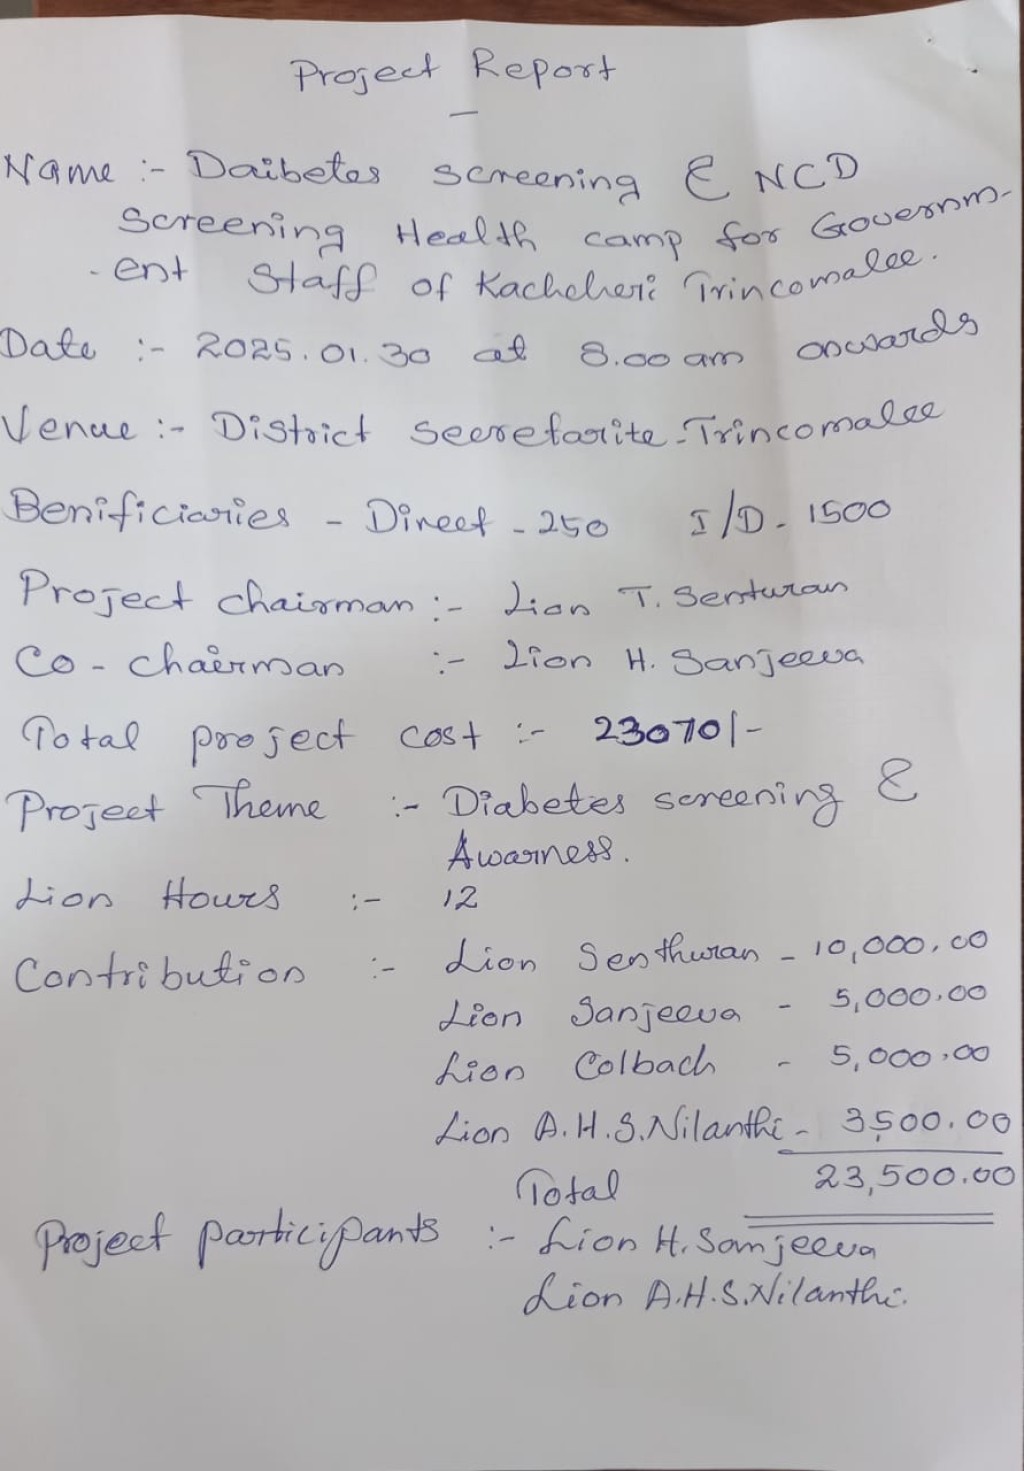 Project Report
Name :- Daibetes screening & NCD
Screening Health camp for Governm-
-ent Staff of Kachcheri Trincomalee.
Date :- 2025.01.30 at 8.00 am onwards
Venue :- District secretarite - Trincomalee
Benificiaries - Direct - 250 I/D - 1500
Project chairman :- Lion T. Senturan
Co - chairman :- Lion H. Sanjeeva
Total project cost :- 23070/-
Project Theme :- Diabetes screening &
Awarness.
Lion Hours :- 12
Contribution :- Lion Senthuran - 10,000.00
Lion Sanjeeva - 5,000.00
Lion Colbach - 5,000.00
Lion A.H.S.Nilanthi - 3,500.00
Total 23,500.00
Project participants :- Lion H. Sanjeeva
Lion A.H.S.Nilanthi.